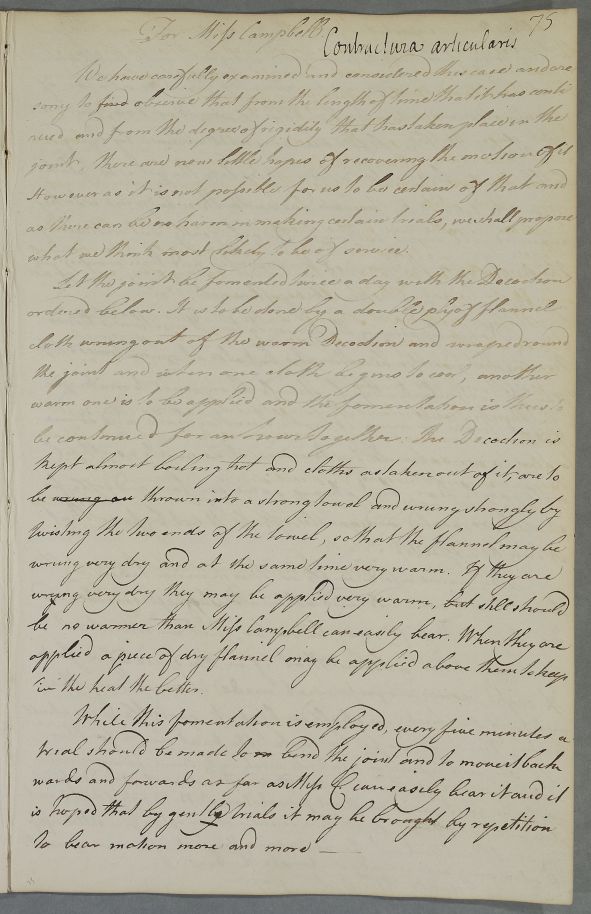 For Miss Campbell. 75
Contractura articularis
We have carefully examined and considered this case and are
sorry to find observe that from the length of time that it has conti
nued and from the degree of rigidity that has taken place in the
joint, there are now little hopes of recovering the motion of it
However as it is not possible for us to be certain of that and
as there can be no harm in making certain trials, we shall propose
what we think most likely to be of service.
Let the joint be fomented twice a day with the Decoction
ordered below. It is to be done by a double ply of flannel
cloth wrung out of the warm Decoction and wraped round
the joint and when one cloth begins to cool, another
warm one is to be applied and the fomentation is thus to
be continued for an hour together. The Decoction is
kept almost boiling hot and cloths as taken out of it, are to
be wrung out thrown into a strong towel and wrung strongly by
twisting the two ends of the towel, so that the flannel may be
wrung very dry and at the same time very warm. If they are
wrung very dry they may be applied very warm, but still should
be no warmer than Miss Campbell can easily bear. When they are
applied a piece of dry flannel may be applied above them to keep
in the heat the better.
While this fomentation is employed, every five minutes a
trial should be made to bend the joint and to move it back
wards and forwards as far as Miss C can easily bear it and it
is hoped that by gently trials it may be brought by repetition
to bear motion more and more —